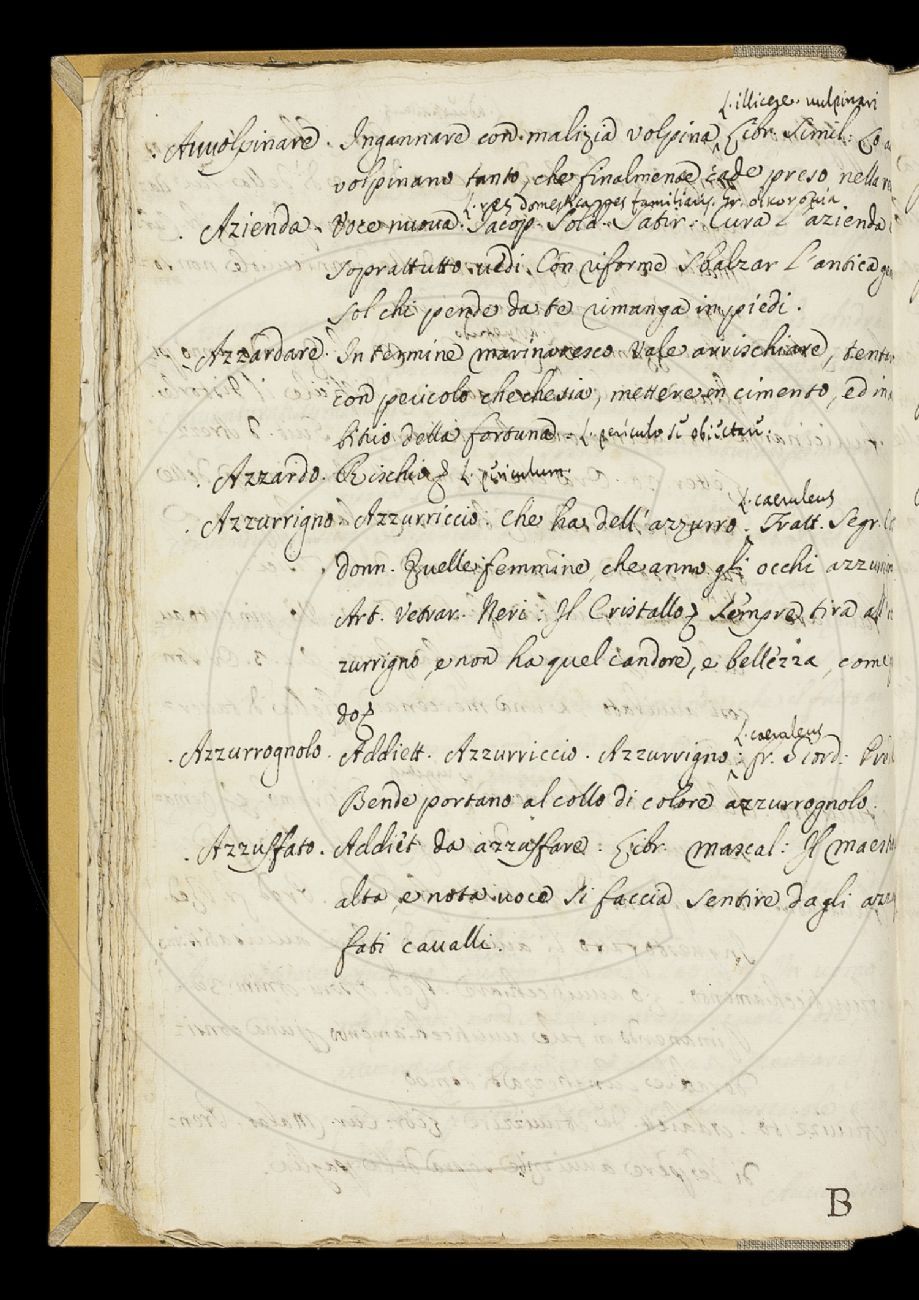 L. illicere vulpinari
Avvolpinare. Ingannare con malizia volpina, Libr. Simil:
volpinano tanto, che finalmente cade preso nella
L. res domestica, res familiaris. Gr.
Azienda. Voce nuova. Jacop. Sold. Satir: Cura l'azienda
soprattutto, vedi. Con riforme sbalzar l'antica
sol chi pende da te rimanga in piedi.
Azzardare. In termine marinaresco vale arrischiare,
con pericolo chechesia, mettere in cimento, ed in
bitrio della fortuna. L. periculo
Azzardo. Rischio L. periculum.
L. caeruleus
Azzurrigno. Azzurriccio. Che ha dell'azzurro. Tratt. Segr.
donn. Quelle femmine, che anno gli occhi
Art. Vetrar. Neri: Il Cristallo sempre tira
zurrigno, e non ha quel candore, e bellezza,
L. caeruleus
Azzurrognolo. Addiett. Azzurriccio. Azzurrigno: fr. Giord:
Bende portano al collo di colore azzurrognolo.
Azzuffato. Addiet da azzuffare: Libr. mascal: Il
alta, e nota voce si faccia sentire dagli
fati cavalli.
B